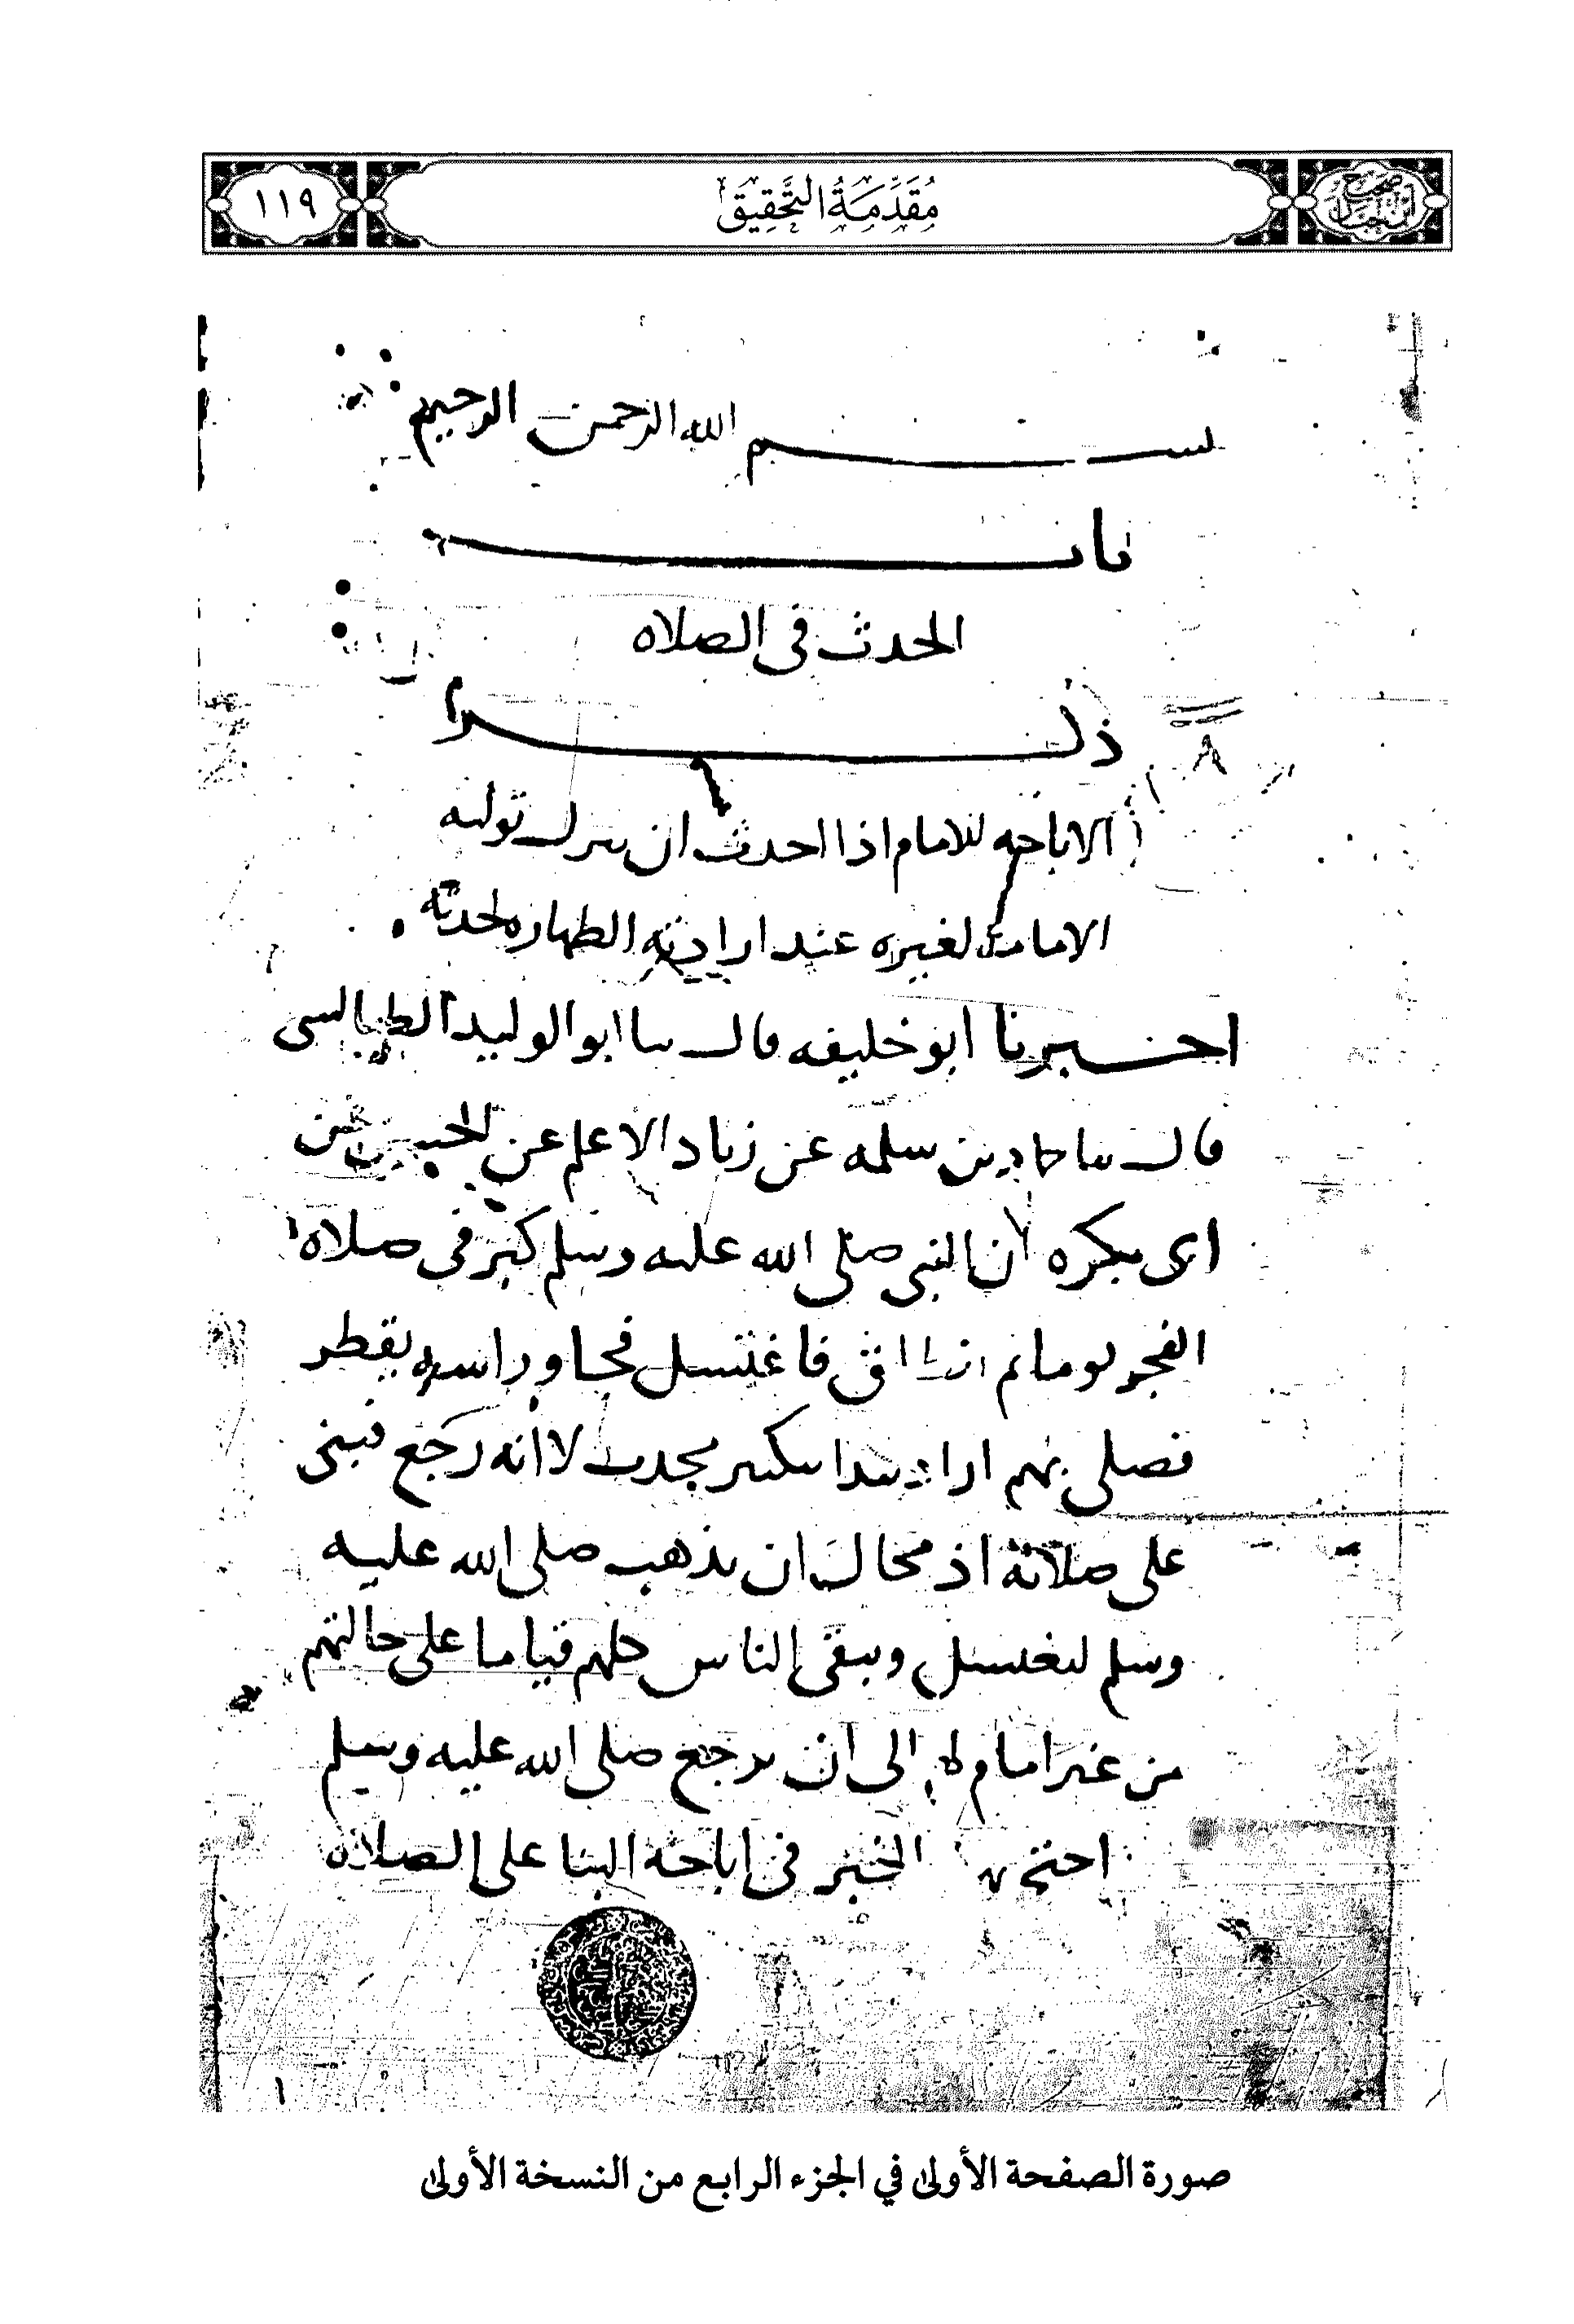 صحيح ابن حبان
مُقَدِّمَةُ التَّحْقِيقِ
١١٩
بسم الله الرحمن الرحيم
باب
الحدث في الصلاه
ذكر
الاباحه للامام اذا احدث ان يترك توليه
الامامه لغيره عند ارادته الطهاره لحدثه
اخبرنا ابو خليفه قال ثنا ابو الوليد الطيالسي
قال ثنا حماد بن سلمه عن زياد الاعلم عن الحسن عن
ابى بكره ان النبي صلى الله عليه وسلم كبر في صلاه
الفجر يوما ثم انطلق فاغتسل فجا وراسه يقطر
فصلى بهم اراد يبدا بتكبير محدث لا انه رجع فبنى
على صلاته اذ محال ان يذهب صلى الله عليه
وسلم ليغتسل ويبقى الناس كلهم قياما على حالتهم
من غير امام لهم الى ان يرجع صلى الله عليه وسلم
احتج الخبر في اباحة البنا على الصلاه
١
صورة الصفحة الأولى في الجزء الرابع من النسخة الأولى